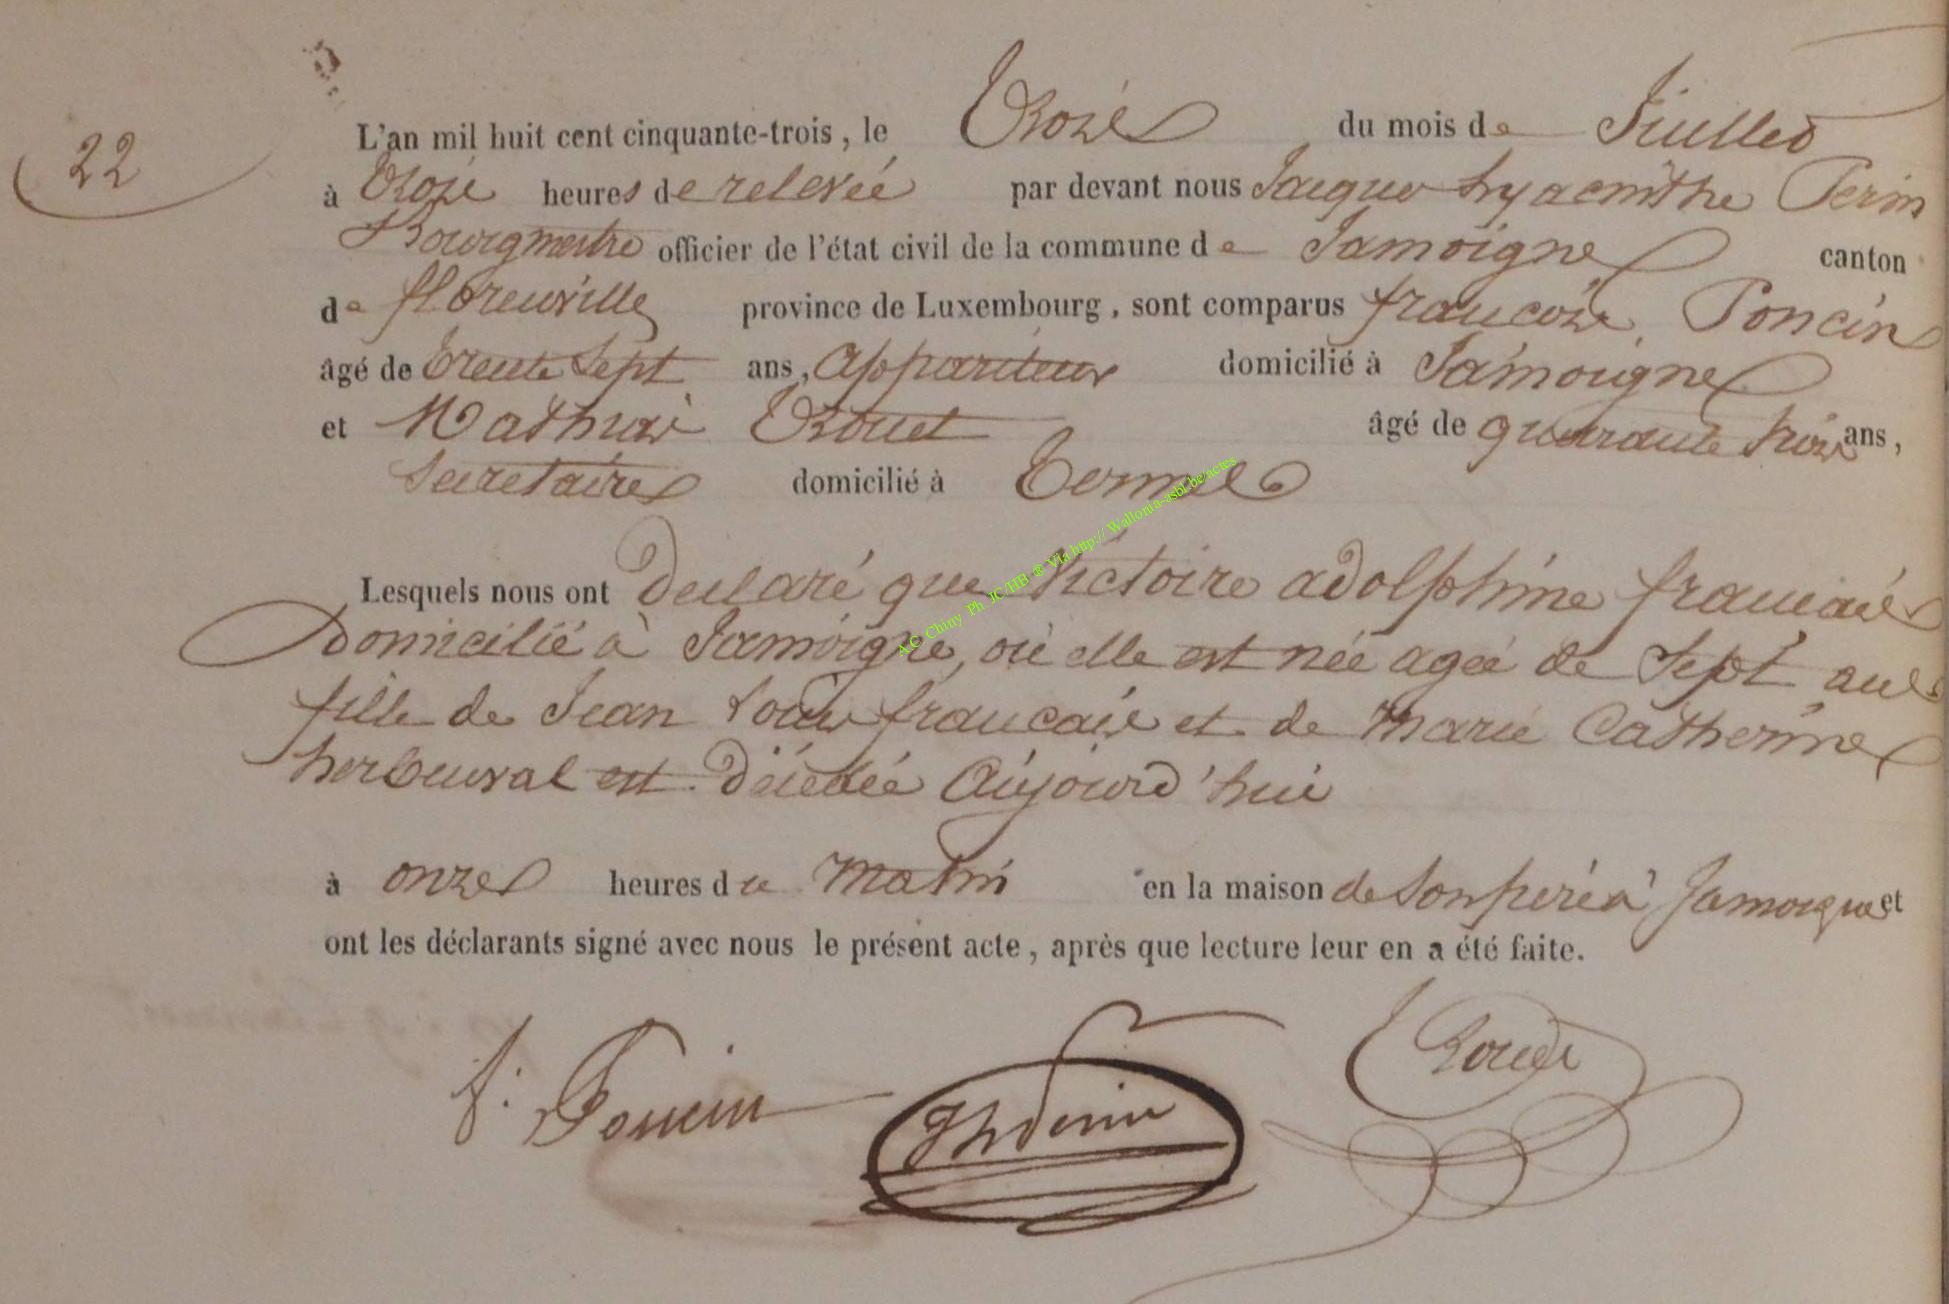 22
L'an mil huit cent cinquante-trois, le Trois du mois de Juillet
à Trois heures de relevée par devant nous Jacque hyacinthe Perin
Bourgmestre officier de l'état civil de la commune de Jamoigne canton
de florenville province de Luxembourg, sont comparus francois Poncin
âgé de trente Sept ans, Appariteur domicilié à Jamoigne
et Mathieu Trouet âgé de quarante trois ans,
Secretaire domicilié à Termes
Lesquels nous ont declaré que Victoire adolphine francais
domicilié à Jamoigne, où elle est née agée de Sept ans
fille de Jean Louis francais et de Marie Catherine
herbeuval est décedée Aujourd'hui
à onze heures du Matin en la maison de Son pere à Jamoigne et
ont les déclarants signé avec nous le présent acte, après que lecture leur en a été faite.
f. Poncin JhPerin Trouet
A.C. Chiny Ph JC/HB ® Via http://Wallonia-asbl.be/actes